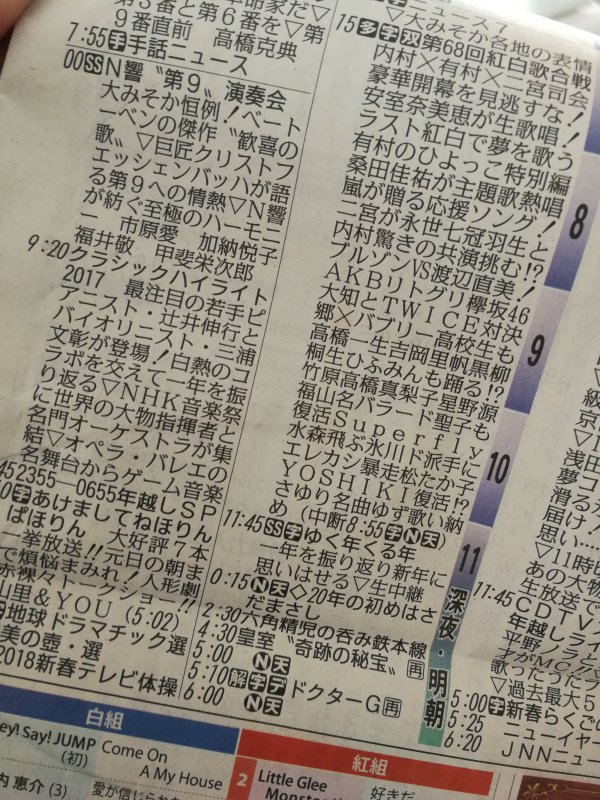 9番直前 高橋克典
7:55手手話ニュース
00SSN響〝第9〟演奏会
大みそか恒例!ベート
ーベンの傑作〝歓喜の
歌〟▽巨匠クリストフ
・エッシェンバッハが語
る第9への情熱▽N響
が紡ぐ至極のハーモニ
ー 市原愛 加納悦子
福井敬 甲斐栄次郎
9:20クラシックハイライト
2017 最注目の若手ピ
アニスト・辻井伸行と
バイオリニスト・三浦
文彰が登場!白熱のコ
ラボを交えて一年を振
り返る▽NHK音楽祭
に世界の大物指揮者と
名門オーケストラが集
結▽オペラ・バレエの
名舞台からゲーム音楽
45 2355―0655年越しSP
0字あけましてねほりん
ぱほりん 大好評7本
一挙放送!!元日の朝ま
で煩悩まみれ!人形劇
赤裸々トークショー!!
山里&YOU(5:02)
地球ドラマチック選
美の壺・選
2018新春テレビ体操
ニュース7
▽大みそか各地の表情
15多字双第68回紅白歌合戦
内村×有村×二宮司会
豪華開幕を見逃すな!
安室奈美恵が生歌唱!
ラスト紅白で夢を歌う
有村のひよっこ特別編
桑田佳祐が主題歌熱唱
嵐が贈る応援ソング!
二宮が永世七冠羽生と
内村驚きの共演挑む!?
ブルゾンVS渡辺直美!
AKBリトグリ欅坂46
大知とTWICE対決
郷×バブリー高校生も
高橋一生吉岡里帆黒柳
桐生ひふみんも踊る!?
竹原高橋真梨子星野源
福山名バラード聖子も
復活Superfly
水森飛ぶ氷川ド派手に
エレカシ暴走松たか子
YOSHIKI復活!?
さゆり名曲ゆず歌い納
め(中断8:55字N天)
11:45SS字ゆく年くる年
一年を振り返り新年に
思いはせる▽生中継
0:15N天◇20年の初めはさ
だまさし
2:30六角精児の呑み鉄本線
4:30皇室〝奇跡の秘宝〟再
5:00N天
5:10解字デドクターG再
6:00N天
8
9
10
11
深夜・明朝
11:45CDTV
年越しライ
平野ノラと
才がMC▽
歌ったうた
▽過去最大5
5:00字新春らくごの
5:25ニューイヤー
6:20JNNニュー
白組
ey! Say! JUMP
(初)
Come On
A My House
内 恵介(3)
愛が信じられ
紅組
2
Little Glee
Monster
好きだ